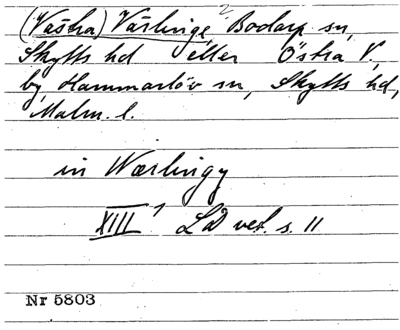 (Västra) Värlinge, 2 Bodarp sn,
Skytts hd eller Östra V.,
by, Hammarlöv sn, Skytts hd,
Malm. l.
in Wærlingy
XIII 1 LD vet. s. 11
Nr 5803